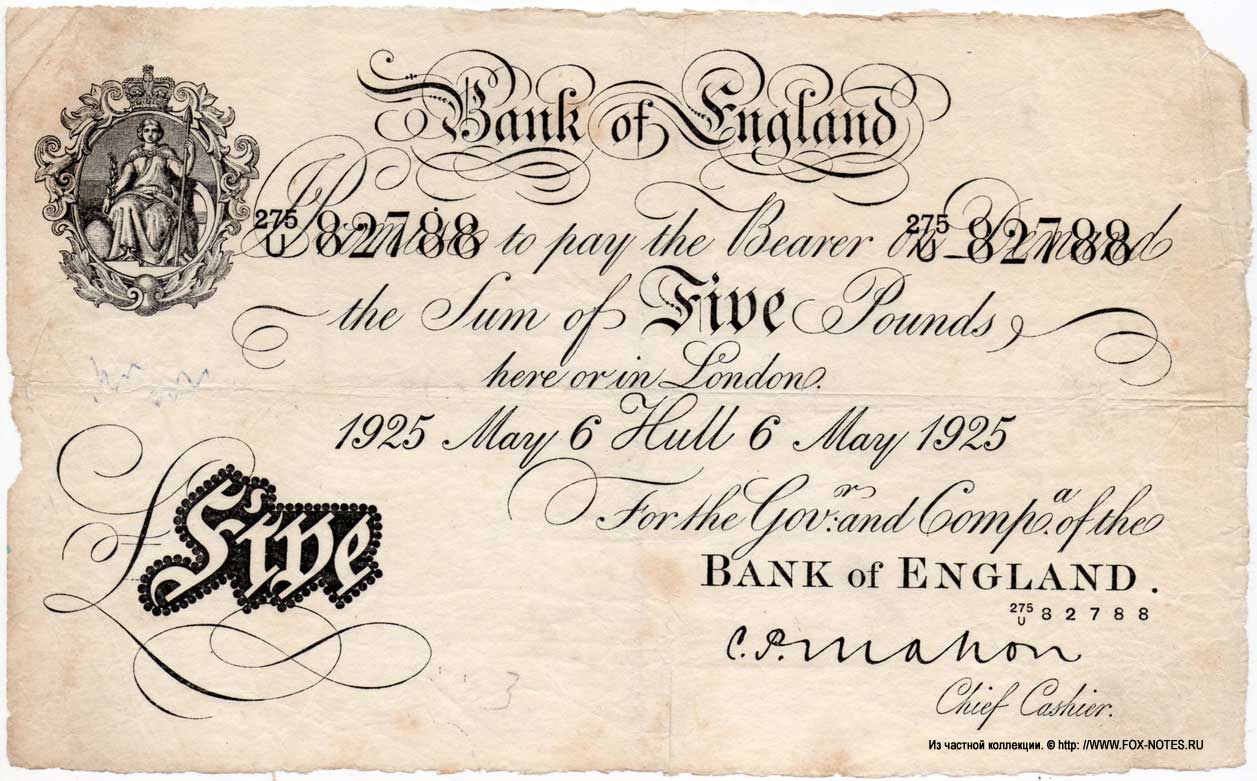 Bank of England
275/U 82788 I Promise to pay the Bearer on Demand 275/U 82788
the Sum of Five Pounds
here or in London.
1925 May 6 Hull 6 May 1925
For the Gov.r and Comp.a of the
BANK of ENGLAND.
275/U 82788
C.P. Mahon
Chief Cashier.
£Five
3
Из частной коллекции. © http: //WWW.FOX-NOTES.RU